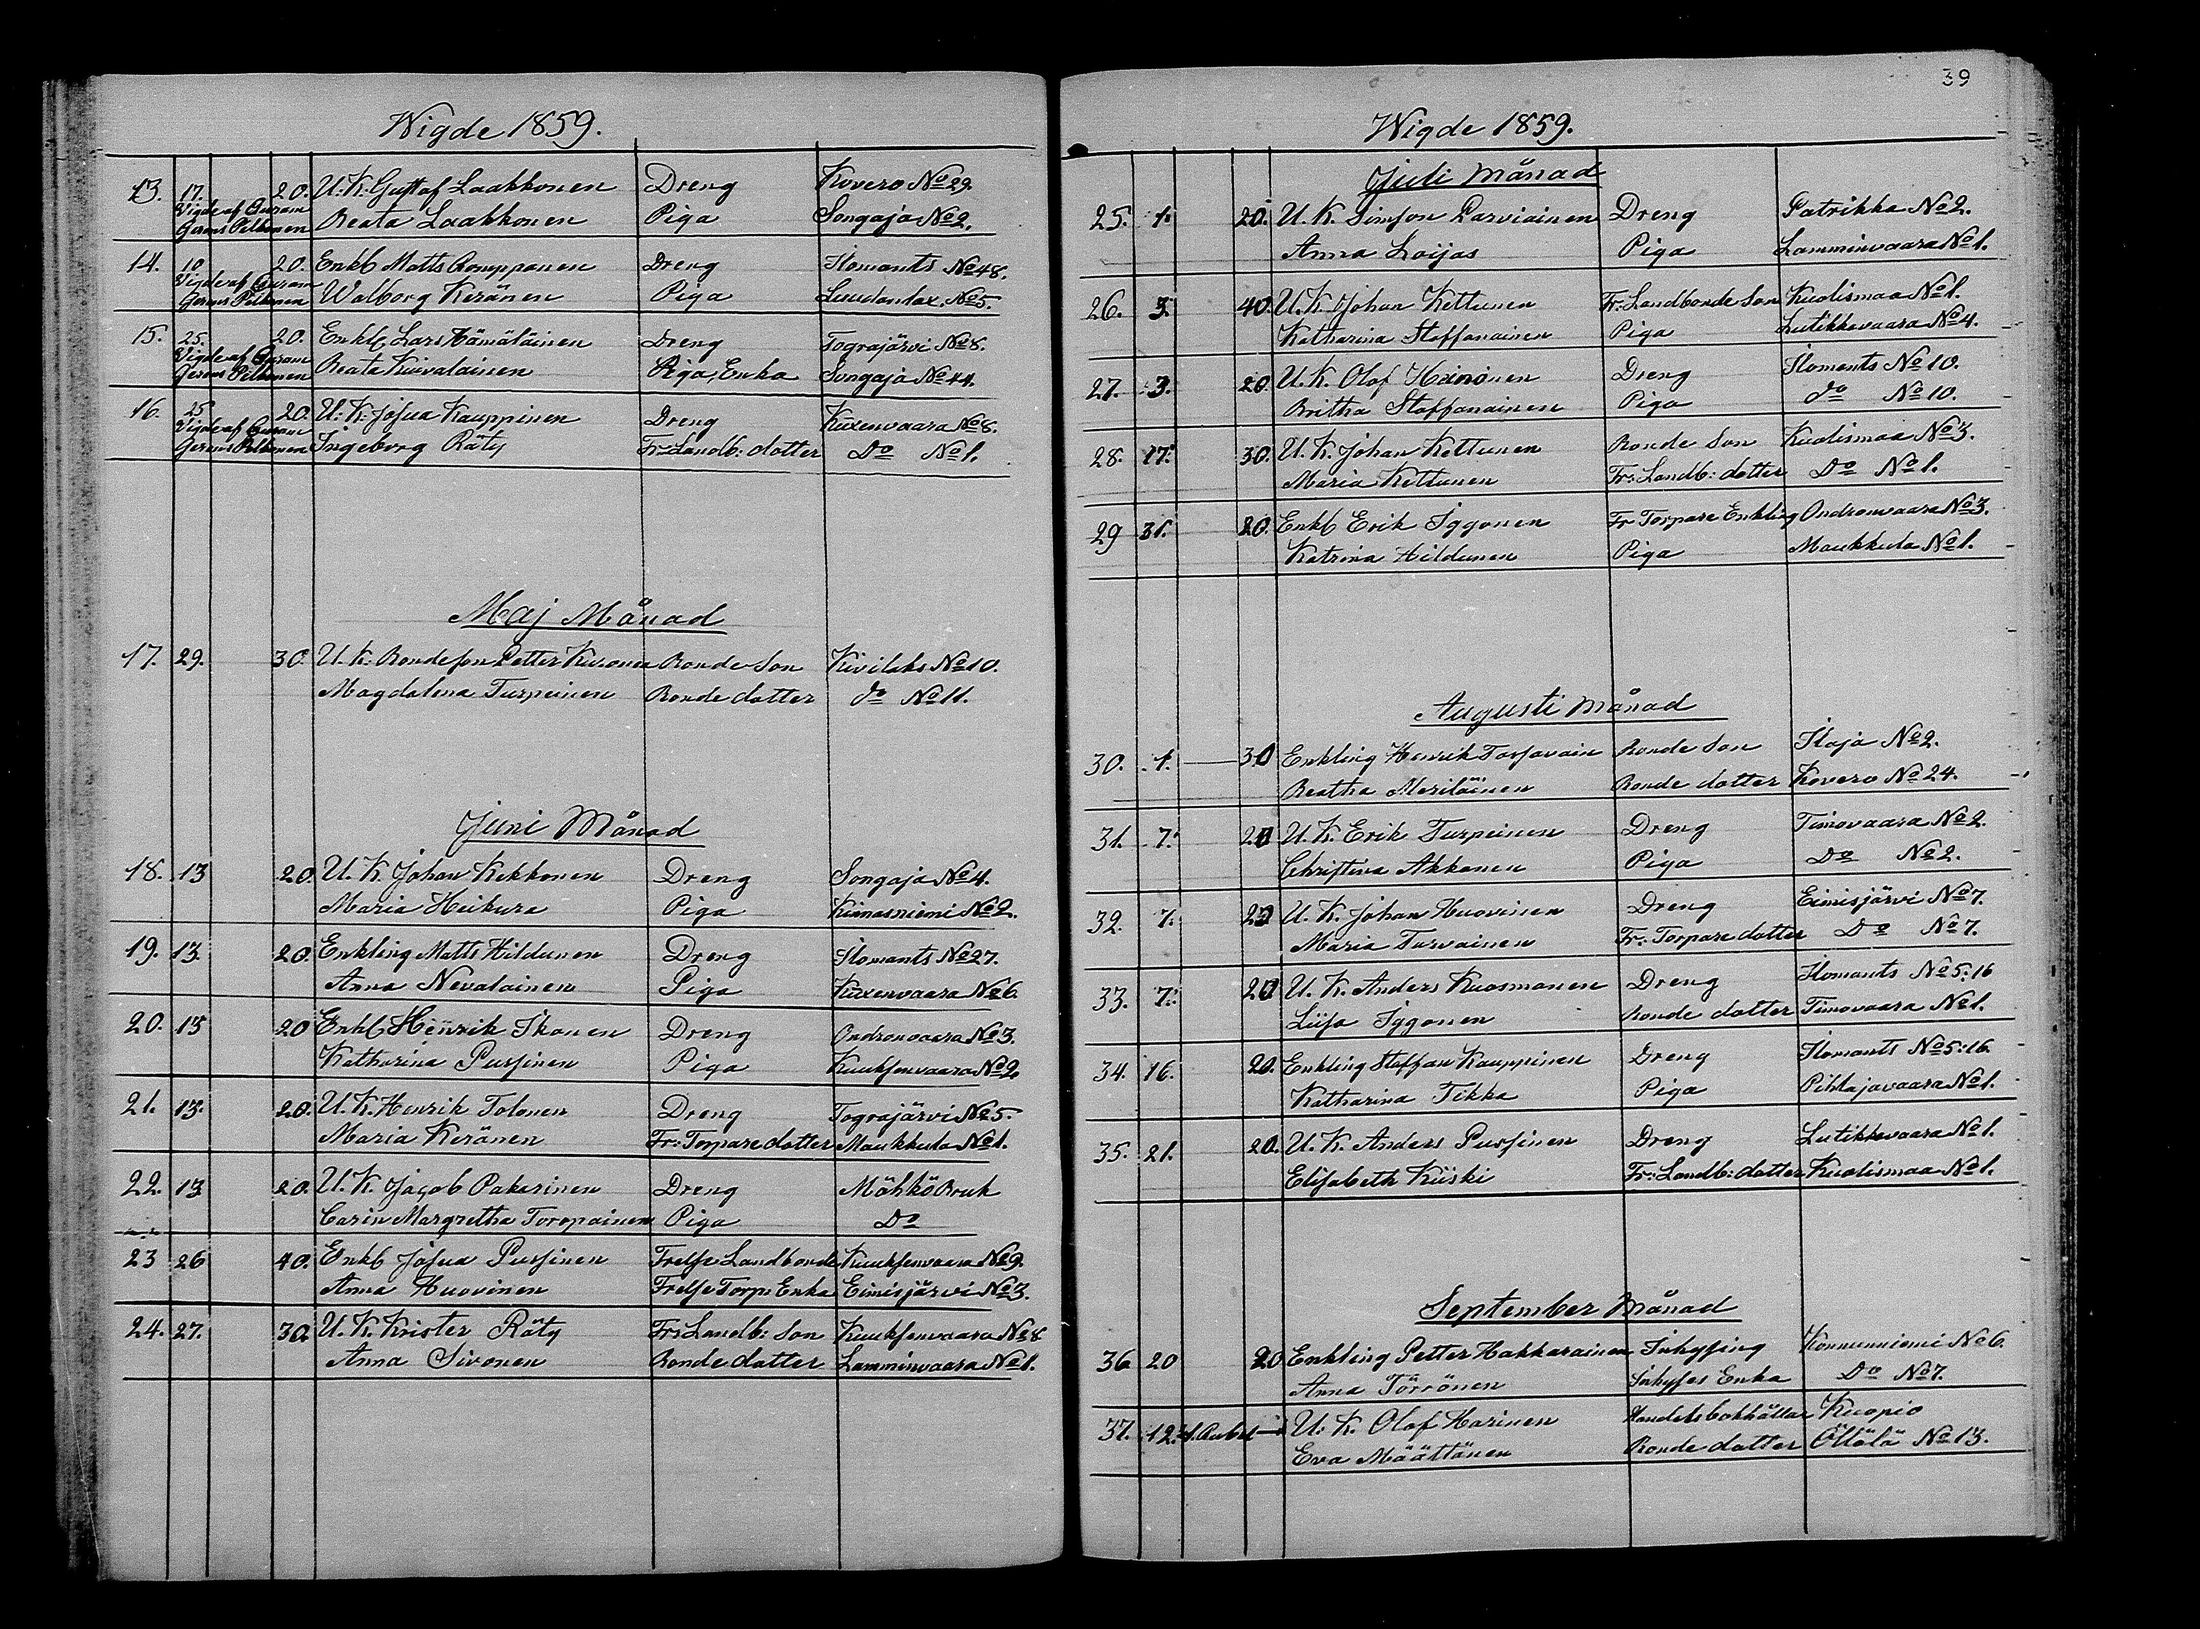 Wigde 1859.
13. 17. 20. U. K. Gustaf Laakkonen Dreng Kovero No 29.
Vigde af
Beata Laakkonen Piga Songaja No 2.
14. 10 20. Enkl Matts Romppanen Dreng Ilomants No 48.
Vigde af
Walborg Keränen Piga No 5.
15. 25. 20. Enkl. Lars Hämäläinen Dreng Tograjärvi No 8.
Vigde af
Beata Kuivalainen Piga, Enka Songaja No 44.
16. 25 20. U. K. Josua Kauppinen Dreng Kuxenvaara No 8.
Vigde af
Ingeborg Räty Fr: Landb: dotter Do No 1.
Maj Månad
17. 29. 30. U. K. Bondeson Petter Kuronen Bonde Son Kivilaks No 10.
Magdalena Turpeinen Bonde dotter do No 11.
Juni Månad
18. 13 20. U. K. Johan Kekkonen Dreng Songaja No 4.
Maria Heikura Piga No 2.
19. 13 20. Enkling Matts Hildunen Dreng Ilomants No 27.
Anna Nevalainen Piga Kuxenvaara No 6.
20. 13 20 Enkl Henrik Ikonen Dreng Ondronvaara No 3.
Katharina Pussinen Piga Kuuksenvaara No 2.
21. 13. 20. U. K. Henrik Tolonen Dreng Tograjärvi No 5.
Maria Keränen Fr: Torpare dotter Maukkula No 1.
22. 13 20. U. K. Jacob Pakarinen Dreng Möhkö Bruk
Carin Margretha Toropainen Piga Do
23 26 40. Enkl Josua Pussinen Frelse Landbonde Kuuksenvaara No 9.
Anna Huovinen Frelse Torp: Enka Eimisjärvi No 3.
24. 27. 30. U. K. Krister Räty Fr: Landb: Son Kuuksenvaara No 8
Anna Sivonen Bonde dotter Lamminvaara No 1.
39
Wigde 1859.
Juli Månad
25. 1. 20. U. K. Simson Parviainen Dreng Patrikka No 2.
Anna Loijas Piga Lamminvaara No 1.
26. 3. 40. U. K. Johan Kettunen Fr: Landbonde Son Kuolismaa No 1.
Katharina Staffanainen Piga Lutikkavaara No 4.
27. 3. 20 U. K. Olof Dreng Ilomants No 10.
Britha Staffanainen Piga do No 10.
28. 17. 30. U. K. Johan Kettunen Bonde Son Kuolismaa No 3.
Maria Kettunen Fr: Landb: dotter Do No 1.
29 31. 20. Enkl Erik Iggonen Fr Torpare Enkling Ondronvaara No 3.
Katrina Hildunen Piga Maukkula No 1.
Augusti Månad
30. 1. 30 Enkling Henrik Bonde Son Ilaja No 2.
Beatha Meriläinen Bonde dotter Kovero No 24.
31. 7. 20 U. K. Erik Turpeinen Dreng Timovaara No 2.
Christina Akkanen Piga Do No 2.
32. 7. 20 U. K. Johan Huovinen Dreng Eimisjärvi No 7.
Maria Turvainen Fr: Torpare dotter Do No 7.
33. 7. 20 U. K. Anders Kuosmanen Dreng Ilomants No 5:16
Liisa Iggonen Bonde dotter Timovaara No 1.
34. 16. 20. Enkling Staffan Kauppinen Dreng Ilomants No 5:16.
Katharina Tikka Piga Pihlajavaara No 1.
35. 21. 20. U. K. Anders Pussinen Dreng Lutikkavaara No 1.
Elisabeth Kiiski Fr: Landb: dotter Kuolismaa No 1.
September Månad
36 20 20 Enkling Petter Hakkarainen Inhysing Konnunniemi No 6.
Anna Törrönen Inhyses Enka Do No 7.
37. 12. 1. Rubel U. K. Olof Harinen Handelsbokhållar Kuopio
Eva Määttänen Bonde dotter Öllölä No 13.